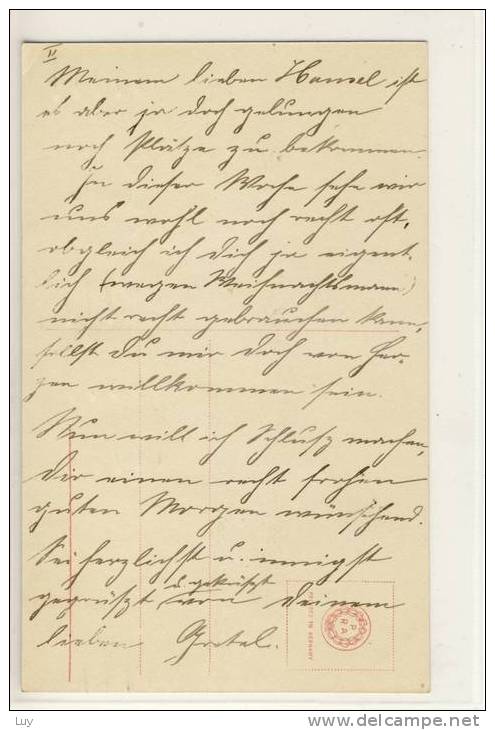 II
Meinem lieben Hansel ist
es aber ja doch gelungen
noch Plätze zu bekommen.
In dieser Woche sehe wir
uns wohl noch recht oft,
obgleich ich Dich ja eigent-
lich (wegen Weihnachtsmann)
nicht recht gebrauchen kann,
sollst Du mir doch von Her-
zen willkommen sein.
Nun will ich Schluß machen,
Dir einen recht frohen
guten Morgen wünschend.
Sei herzlichst u. innigst
u. geküßt
gegrüßt von Deinem
lieben Gretel.
P R A
IN GERMANY
Luy
www.delcampe.net